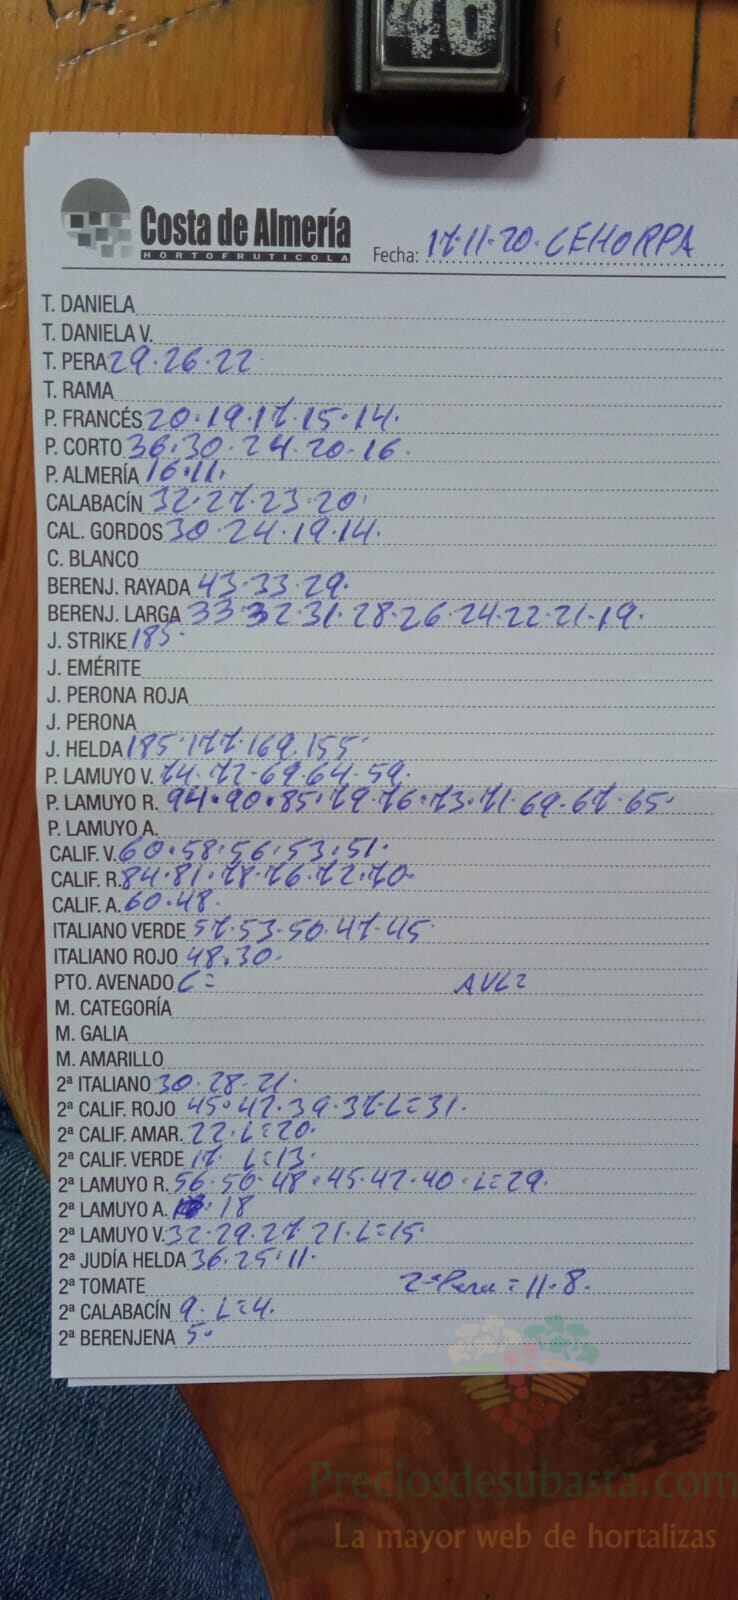 46
Costa de Almería
HORTOFRUTICOLA
Fecha: 17.11.20. CEHORPA
T. DANIELA
T. DANIELA V.
T. PERA 29.26.22
T. RAMA
P. FRANCÉS 20.19.17.15.14.
P. CORTO 36.30.24.20.16.
P. ALMERÍA 16.11.
CALABACÍN 32.27.23.20.
CAL. GORDOS 30.24.19.14.
C. BLANCO
BERENJ. RAYADA 43.33.29.
BERENJ. LARGA 33.32.31.28.26.24.22.21.19.
J. STRIKE 185.
J. EMÉRITE
J. PERONA ROJA
J. PERONA
J. HELDA 185.177.169.155.
P. LAMUYO V. 74.72.69.64.59.
P. LAMUYO R. 94.90.85.79.76.73.71.69.67.65.
P. LAMUYO A.
CALIF. V. 60.58.56.53.51.
CALIF. R. 84.81.78.76.72.70.
CALIF. A. 60.48.
ITALIANO VERDE 57.53.50.47.45
ITALIANO ROJO 48.30.
PTO. AVENADO C= AVL=
M. CATEGORÍA
M. GALIA
M. AMARILLO
2ª ITALIANO 30.28.21.
2ª CALIF. ROJO 45.42.39.37.L=31.
2ª CALIF. AMAR. 22.L=20.
2ª CALIF. VERDE 17. L=13.
2ª LAMUYO R. 56.50.48.45.42.40.L=29.
2ª LAMUYO A. 18
2ª LAMUYO V. 32.29.27.21.L=15.
2ª JUDÍA HELDA 36.25.11.
2ª TOMATE 2ªPera=11.8.
2ª CALABACÍN 9. L=4.
2ª BERENJENA 5.
Preciosdesubasta.com
La mayor web de hortalizas